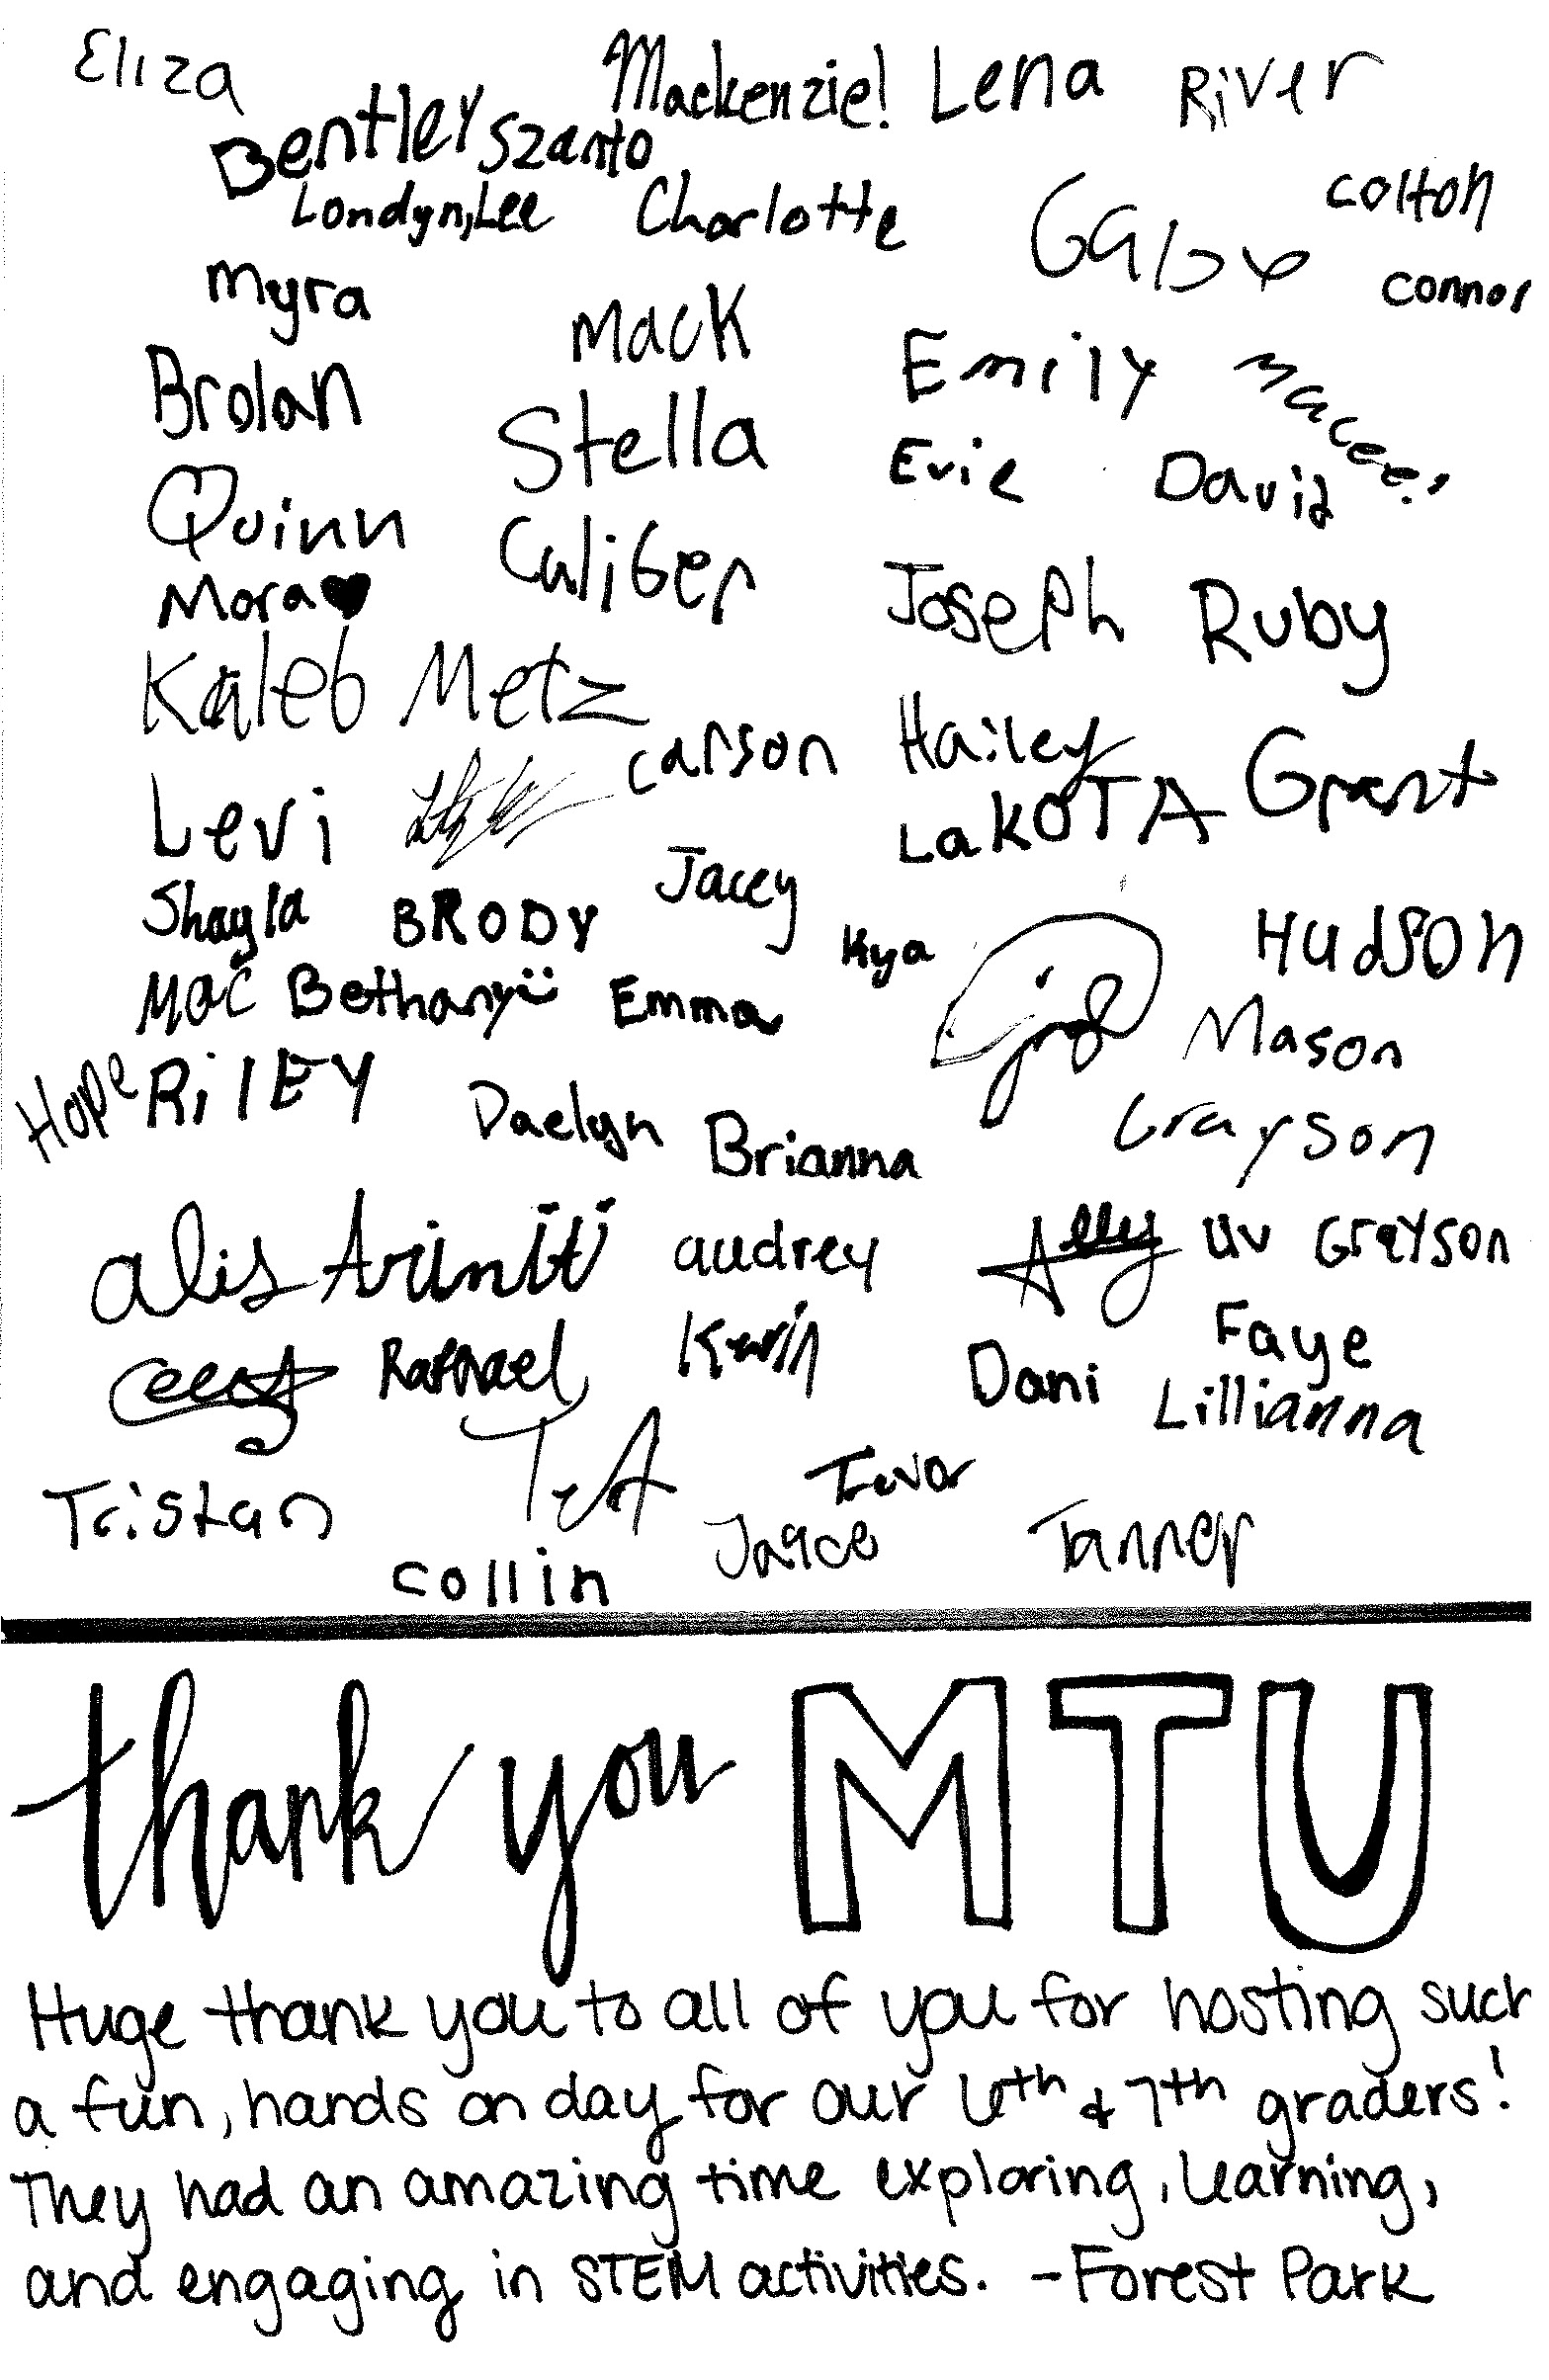 Eliza Mackenzie! Lena River
Bentley Szanto
Londyn, Lee Charlotte Gabe Colton
Myra Connor
Mack
Brolan Emily Macee!
Stella
Evie David
Quinn Caliber
Mora♥ Joseph Ruby
Kaleb Metz
Carson Hailey Grant
Levi LaKOTA
Jacey
Shayla BRODY Kya Hudson
Mac Bethany Emma Mason
Hope RilEY Daelyn Brianna Grayson
alis Triniti audrey Ally Liv Grayson
Raphael Kevin Faye
Dani Lillianna
Tristan Trevor
Collin Jayce Tanner
thank you MTU
Huge thank you to all of you for hosting such
a fun, hands on day for our 6th & 7th graders!
They had an amazing time exploring, learning,
and engaging in STEM activities. -Forest Park